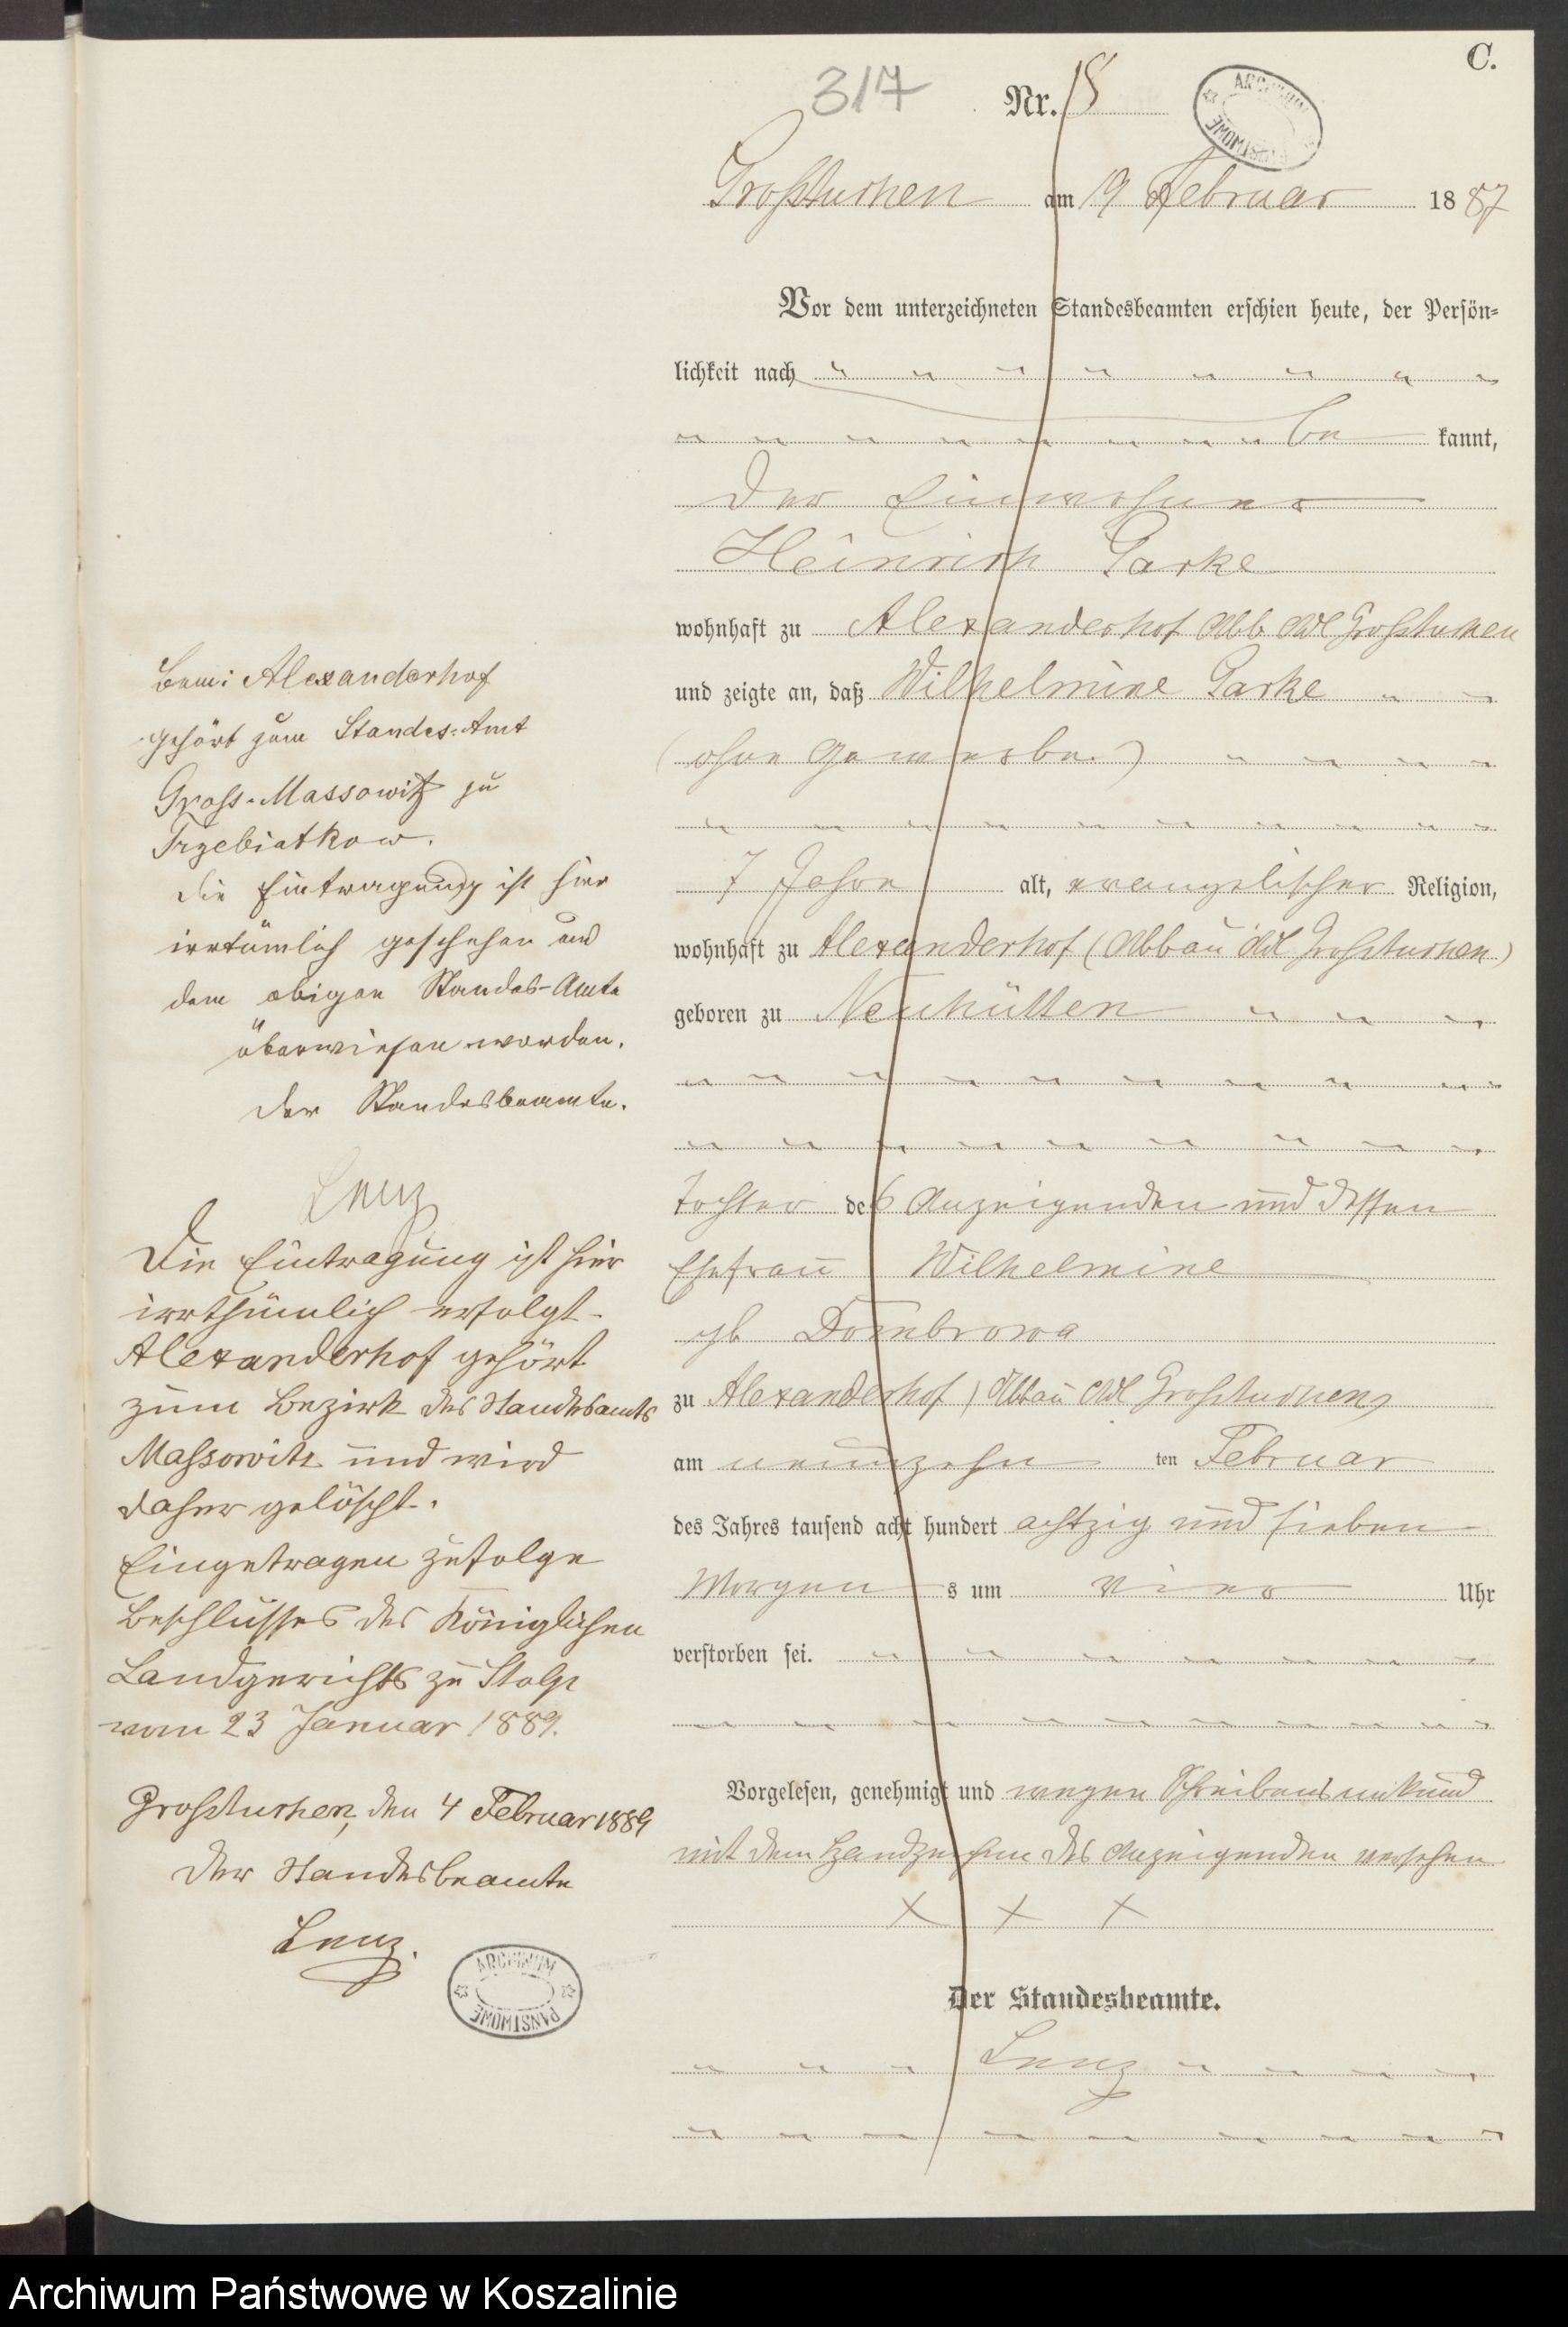 C.
317 Nr. 18
ARCHIWUM
PAŃSTWOWE
Großtuchen am 19 Februar 1887
Vor dem unterzeichneten Standesbeamten erschien heute, der Persön-
lichkeit nach
be kannt,
der Einwohner
Heinrich Garke
wohnhaft zu Alexanderhof Abb Adl Großtuchen
und zeigte an, daß Wilhelmine Garke
(ohne Gewerbe)
7 Jahre alt, evangelischer Religion,
wohnhaft zu Alexanderhof (Abbau Adl Großtuchen)
geboren zu Neuhütten
Tochter des Anzeigenden und dessen
Ehefrau Wilhelmine
gb Dombrowa
zu Alexanderhof (Abbau Adl Großtuchen)
am neunzehn ten Februar
des Jahres tausend acht hundert achtzig und sieben
Morgen s um vier Uhr
verstorben sei.
Vorgelesen, genehmigt und wegen Schreibensunkund
mit dem Handzeichen des Anzeigenden versehen
X X X
Der Standesbeamte.
Lenz
Bem: Alexanderhof
gehört zum Standes-Amt
Gross-Massowitz zu
Trzebiatkow.
Die Eintragung ist hier
irrtümlich geschehen und
dem obigen Standes-Amte
überwiesen worden.
Der Standesbeamte.
Lenz
Die Eintragung ist hier
irrthümlich erfolgt.
Alexanderhof gehört
zum Bezirk des Standesamts
Massowitz und wird
daher gelöscht.
Eingetragen zufolge
Beschlusses des Königlichen
Landgerichts zu Stolp
vom 23 Januar 1889.
Großtuchen, den 4 Februar 1889
Der Standesbeamte
Lenz.
ARCHIWUM
PAŃSTWOWE
Archiwum Państwowe w Koszalinie